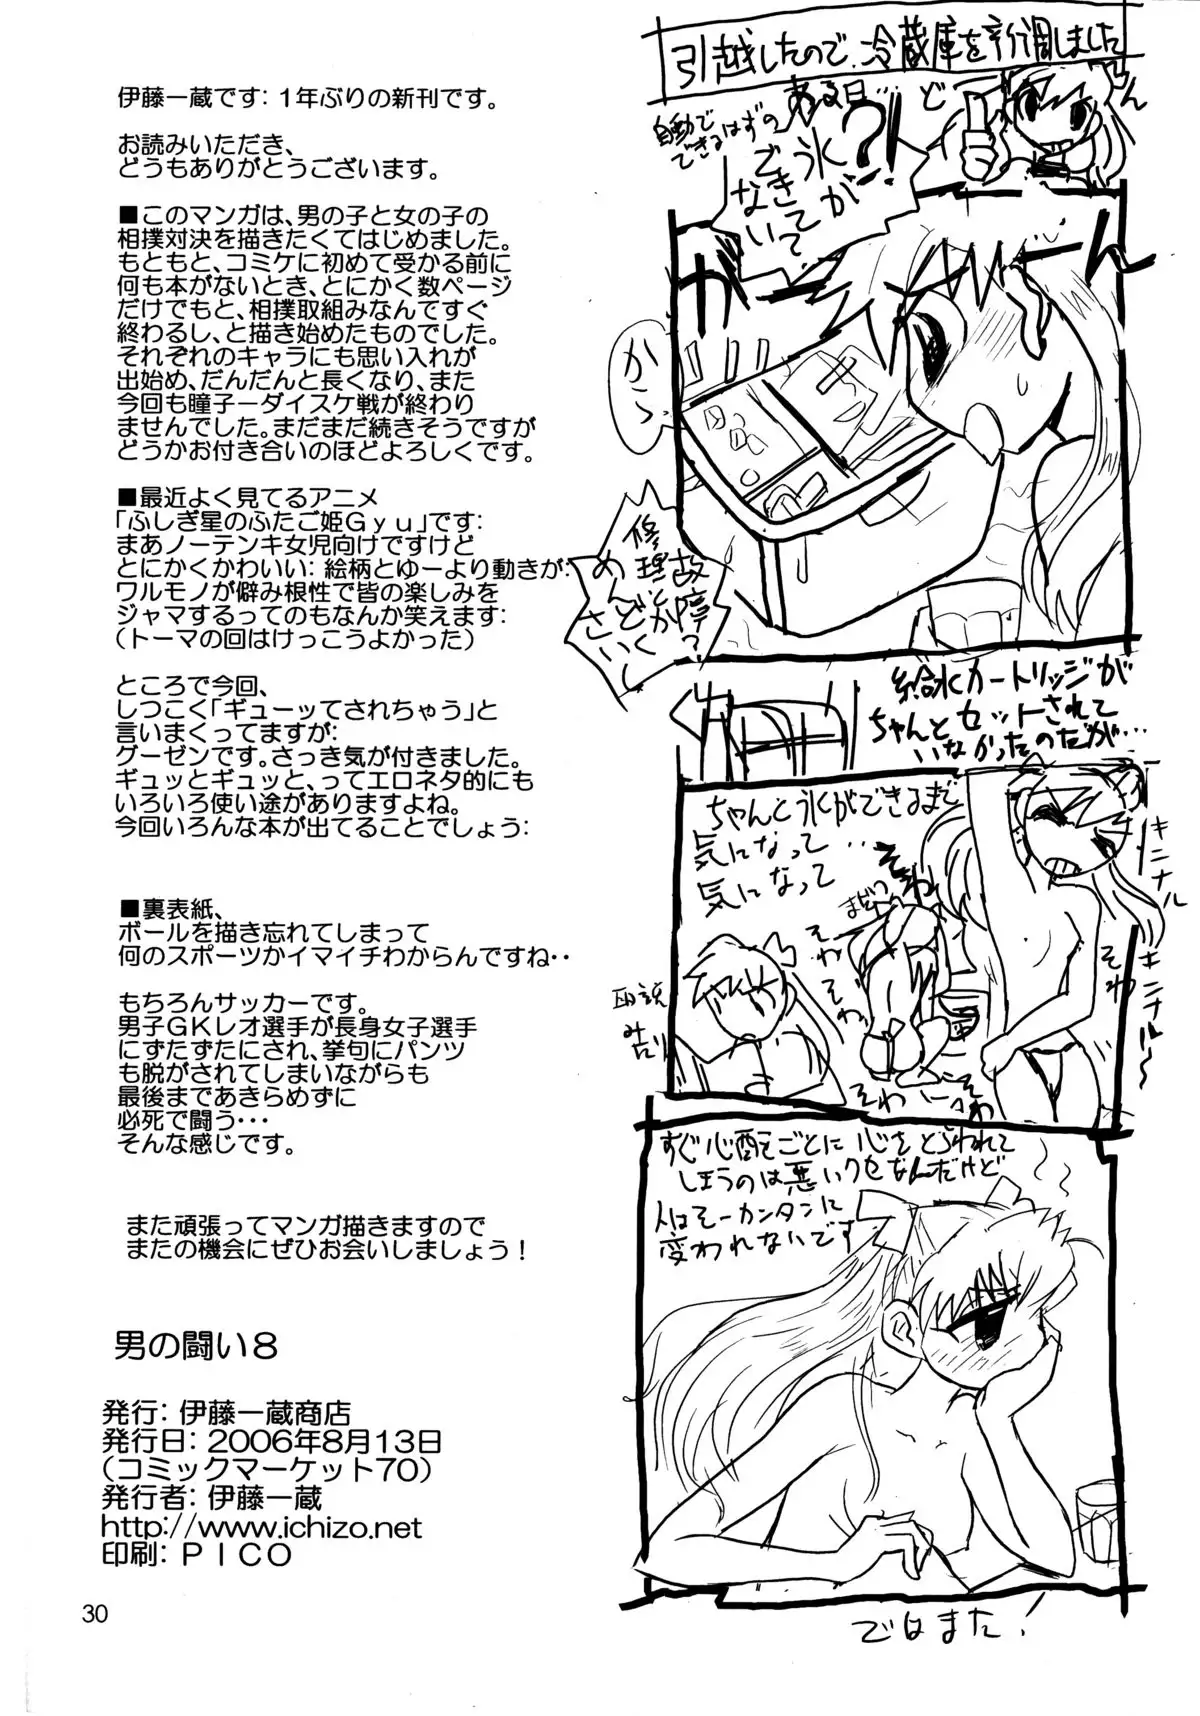 伊藤一蔵です: 1年ぶりの新刊です。
お読みいただき、
どうもありがとうございます。
■このマンガは、男の子と女の子の
相撲対決を描きたくてはじめました。
もともと、コミケに初めて受かる前に
何も本がないとき、とにかく数ページ
だけでもと、相撲取組みなんてすぐ
終わるし、と描き始めたものでした。
それぞれのキャラにも思い入れが
出始め、だんだんと長くなり、また
今回も瞳子ーダイスケ戦が終わり
ませんでした。まだまだ続きそうですが
どうかお付き合いのほどよろしくです。
■最近よく見てるアニメ
「ふしぎ星のふたご姫Gyu」です:
まあノーテンキ女児向けですけど
とにかくかわいい: 絵柄とゆーより動きが:
ワルモノが僻み根性で皆の楽しみを
ジャマするってのもなんか笑えます:
(トーマの回はけっこうよかった)
ところで今回、
しつこく「ギューッてされちゃう」と
言いまくってますが:
グーゼンです。さっき気が付きました。
ギュッとギュッと、ってエロネタ的にも
いろいろ使い途がありますよね。
今回いろんな本が出てることでしょう:
■裏表紙、
ボールを描き忘れてしまって
何のスポーツかイマイチわからんですね‥
もちろんサッカーです。
男子GKレオ選手が長身女子選手
にずたずたにされ、挙句にパンツ
も脱がされてしまいながらも
最後まであきらめずに
必死で闘う・・・
そんな感じです。
また頑張ってマンガ描きますので
またの機会にぜひお会いしましょう！
男の闘い8
発行: 伊藤一蔵商店
発行日: 2006年8月13日
(コミックマーケット70)
発行者: 伊藤一蔵
http://www.ichizo.net
印刷: PICO
30
引越したので、冷蔵庫を新調しました
ど
ん
ある日…
自動で
できるはずの
氷が
できて
ないて?!
が
ん
から
故障?
修理とか
めんどくさいし
給水カートリッジが
ちゃんとセットされて
いなかったのだが…
ちゃんと氷ができるまで
気になって…
気になって
キニナル
キニナル〜
まだかい
そわ
そわ
そわ
そわ
そわ
そわ
すぐ心配ごとに心をとらわれて
しまうのは悪いクセなんだけど
人はそーカンタンに
変われないです
ではまた！